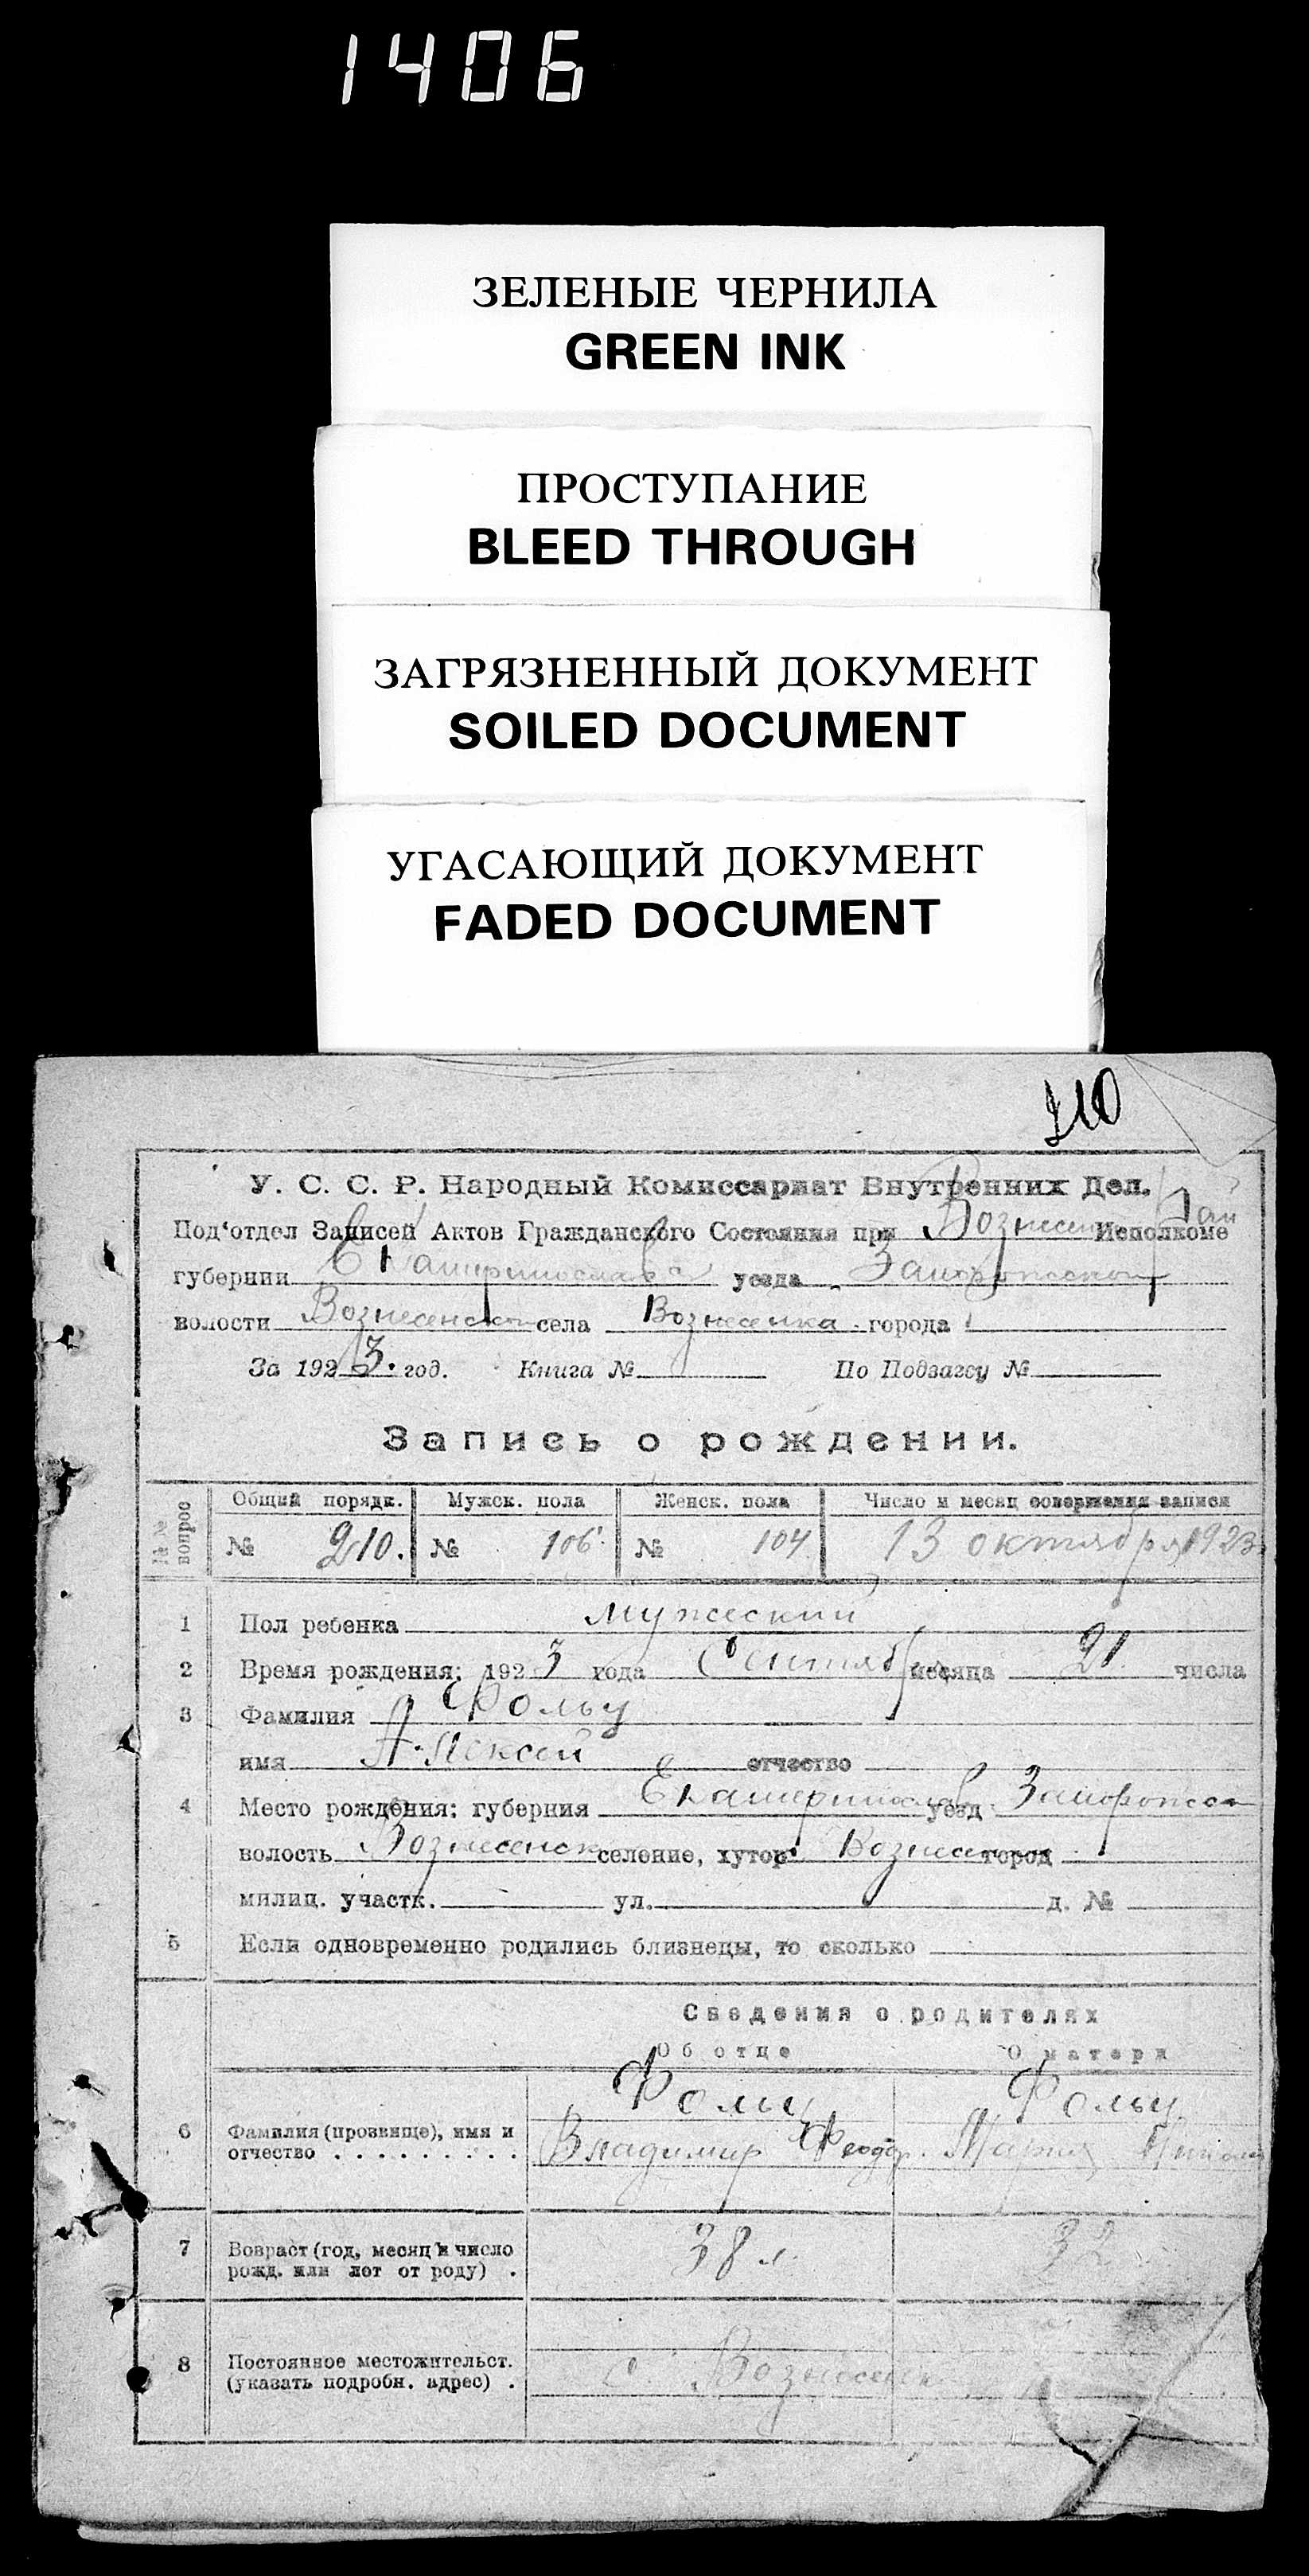 1406
ЗЕЛЕНЫЕ ЧЕРНИЛА
GREEN INK
ПРОСТУПАНИЕ
BLEED THROUGH
ЗАГРЯЗНЕННЫЙ ДОКУМЕНТ
SOILED DOCUMENT
УГАСАЮЩИЙ ДОКУМЕНТ
FADED DOCUMENT
210
У. С. С. Р. Народный Комиссариат Внутренних Дел.
Под'отдел Записей Актов Гражданского Состояния при Вознесен Исполкоме
губернии уезда
волости села Вознесенка города
За 1923. год. Книга № По Подзагсу №
Запись о рождении.
№№ вопрос Общий порядк. Мужск. пола Женск. пола Число и месяц совершения записи
№ 210. № 106 № 104 13 октября 1923
1 Пол ребенка мужеский
2 Время рождения: 1923 года Сентябр месяца 21 числа
3 Фамилия Фольц
имя Алексей отчество
4 Место рождения: губерния Екатеринослав уезд
волость Вознесенск селение, хутор город
милиц. участк. ул. д. №
5 Если одновременно родились близнецы, то сколько
Сведения о родителях
Об отце О матери
Фольц Фольц
6 Фамилия (прозвище), имя и
отчество . . . . . . . . . Владимир Феодор. Мария
7 Возраст (год, месяц и число
рожд. или лет от роду) . 38 л. 32
8 Постоянное местожительст.
(указать подробн. адрес) . с. Вознесенк